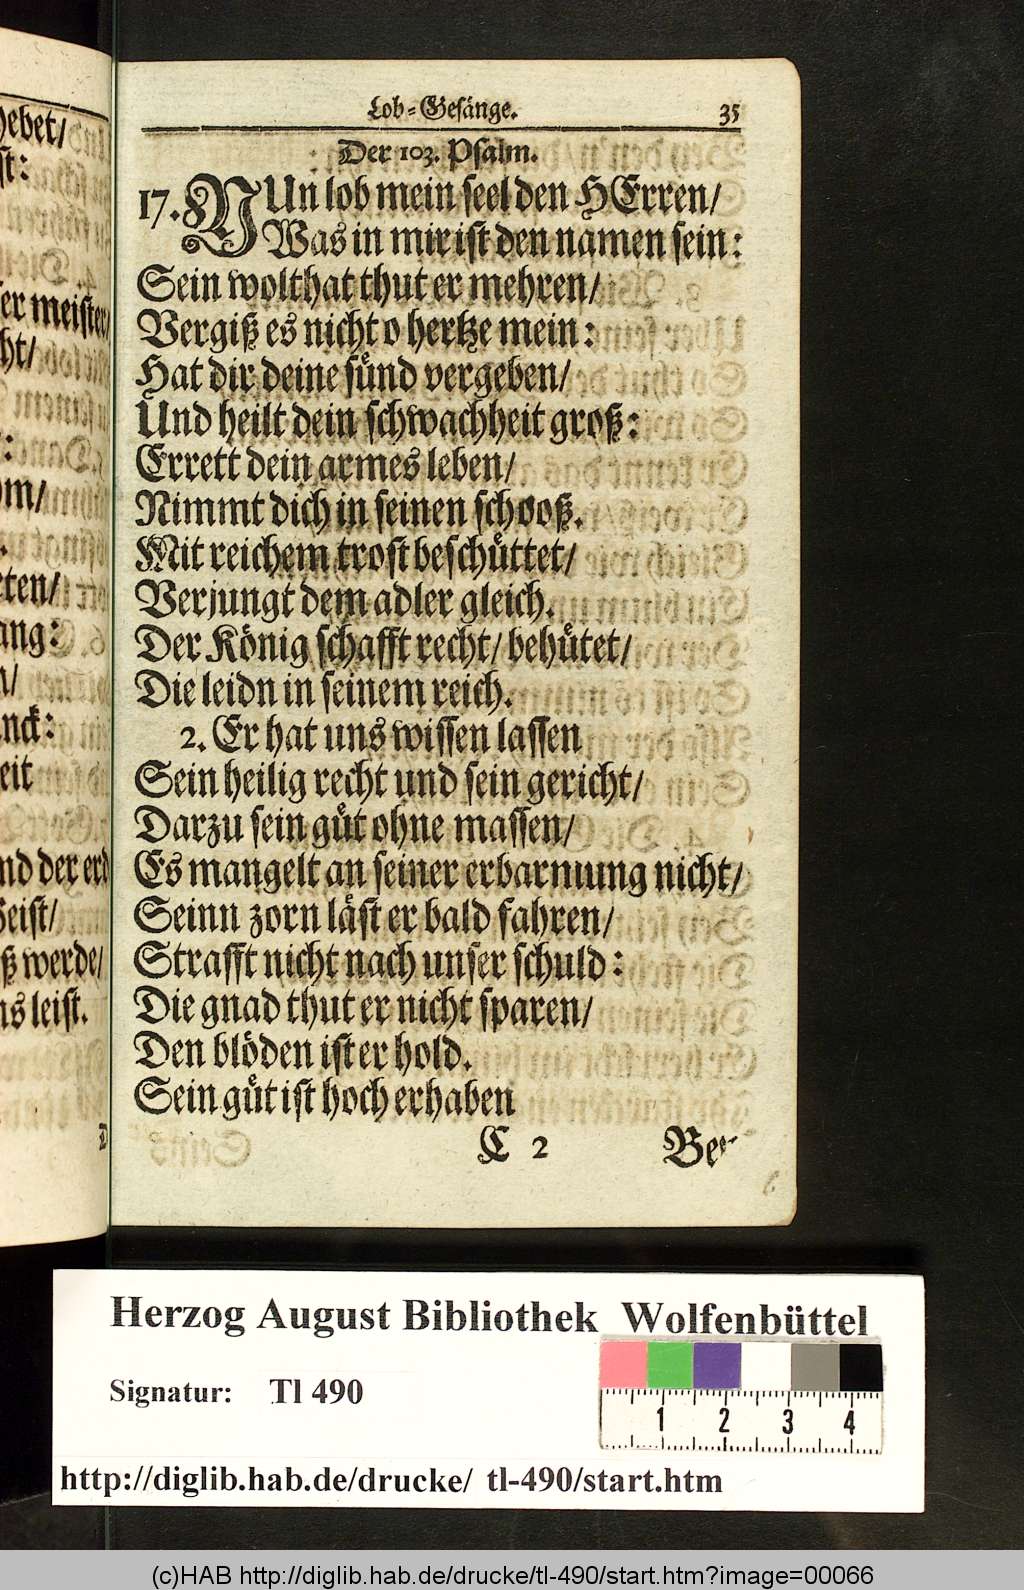 hebet/
st:
er meister/
ht/
:
om/
eten/
ang:
n/
nck:
eit
nd der erd
Geist/
ß werde/
ns leist.
D
Lob-Gesänge. 35
Der 103. Psalm.
17. NUn lob mein seel den HErren/
Was in mir ist den namen sein:
Sein wolthat thut er mehren/
Vergiß es nicht o hertze mein:
Hat dir deine sünd vergeben/
Und heilt dein schwachheit groß:
Errett dein armes leben/
Nimmt dich in seinen schooß.
Mit reichem trost beschüttet/
Verjungt dem adler gleich.
Der König schafft recht/ behütet/
Die leidn in seinem reich.
2. Er hat uns wissen lassen
Sein heilig recht und sein gericht/
Darzu sein güt ohne massen/
Es mangelt an seiner erbarmung nicht/
Seinn zorn läst er bald fahren/
Strafft nicht nach unser schuld:
Die gnad thut er nicht sparen/
Den blöden ist er hold.
Sein güt ist hoch erhaben
C 2 Ber
Herzog August Bibliothek Wolfenbüttel
Signatur: Tl 490
1 2 3 4
http://diglib.hab.de/drucke/ tl-490/start.htm
(c)HAB http://diglib.hab.de/drucke/tl-490/start.htm?image=00066